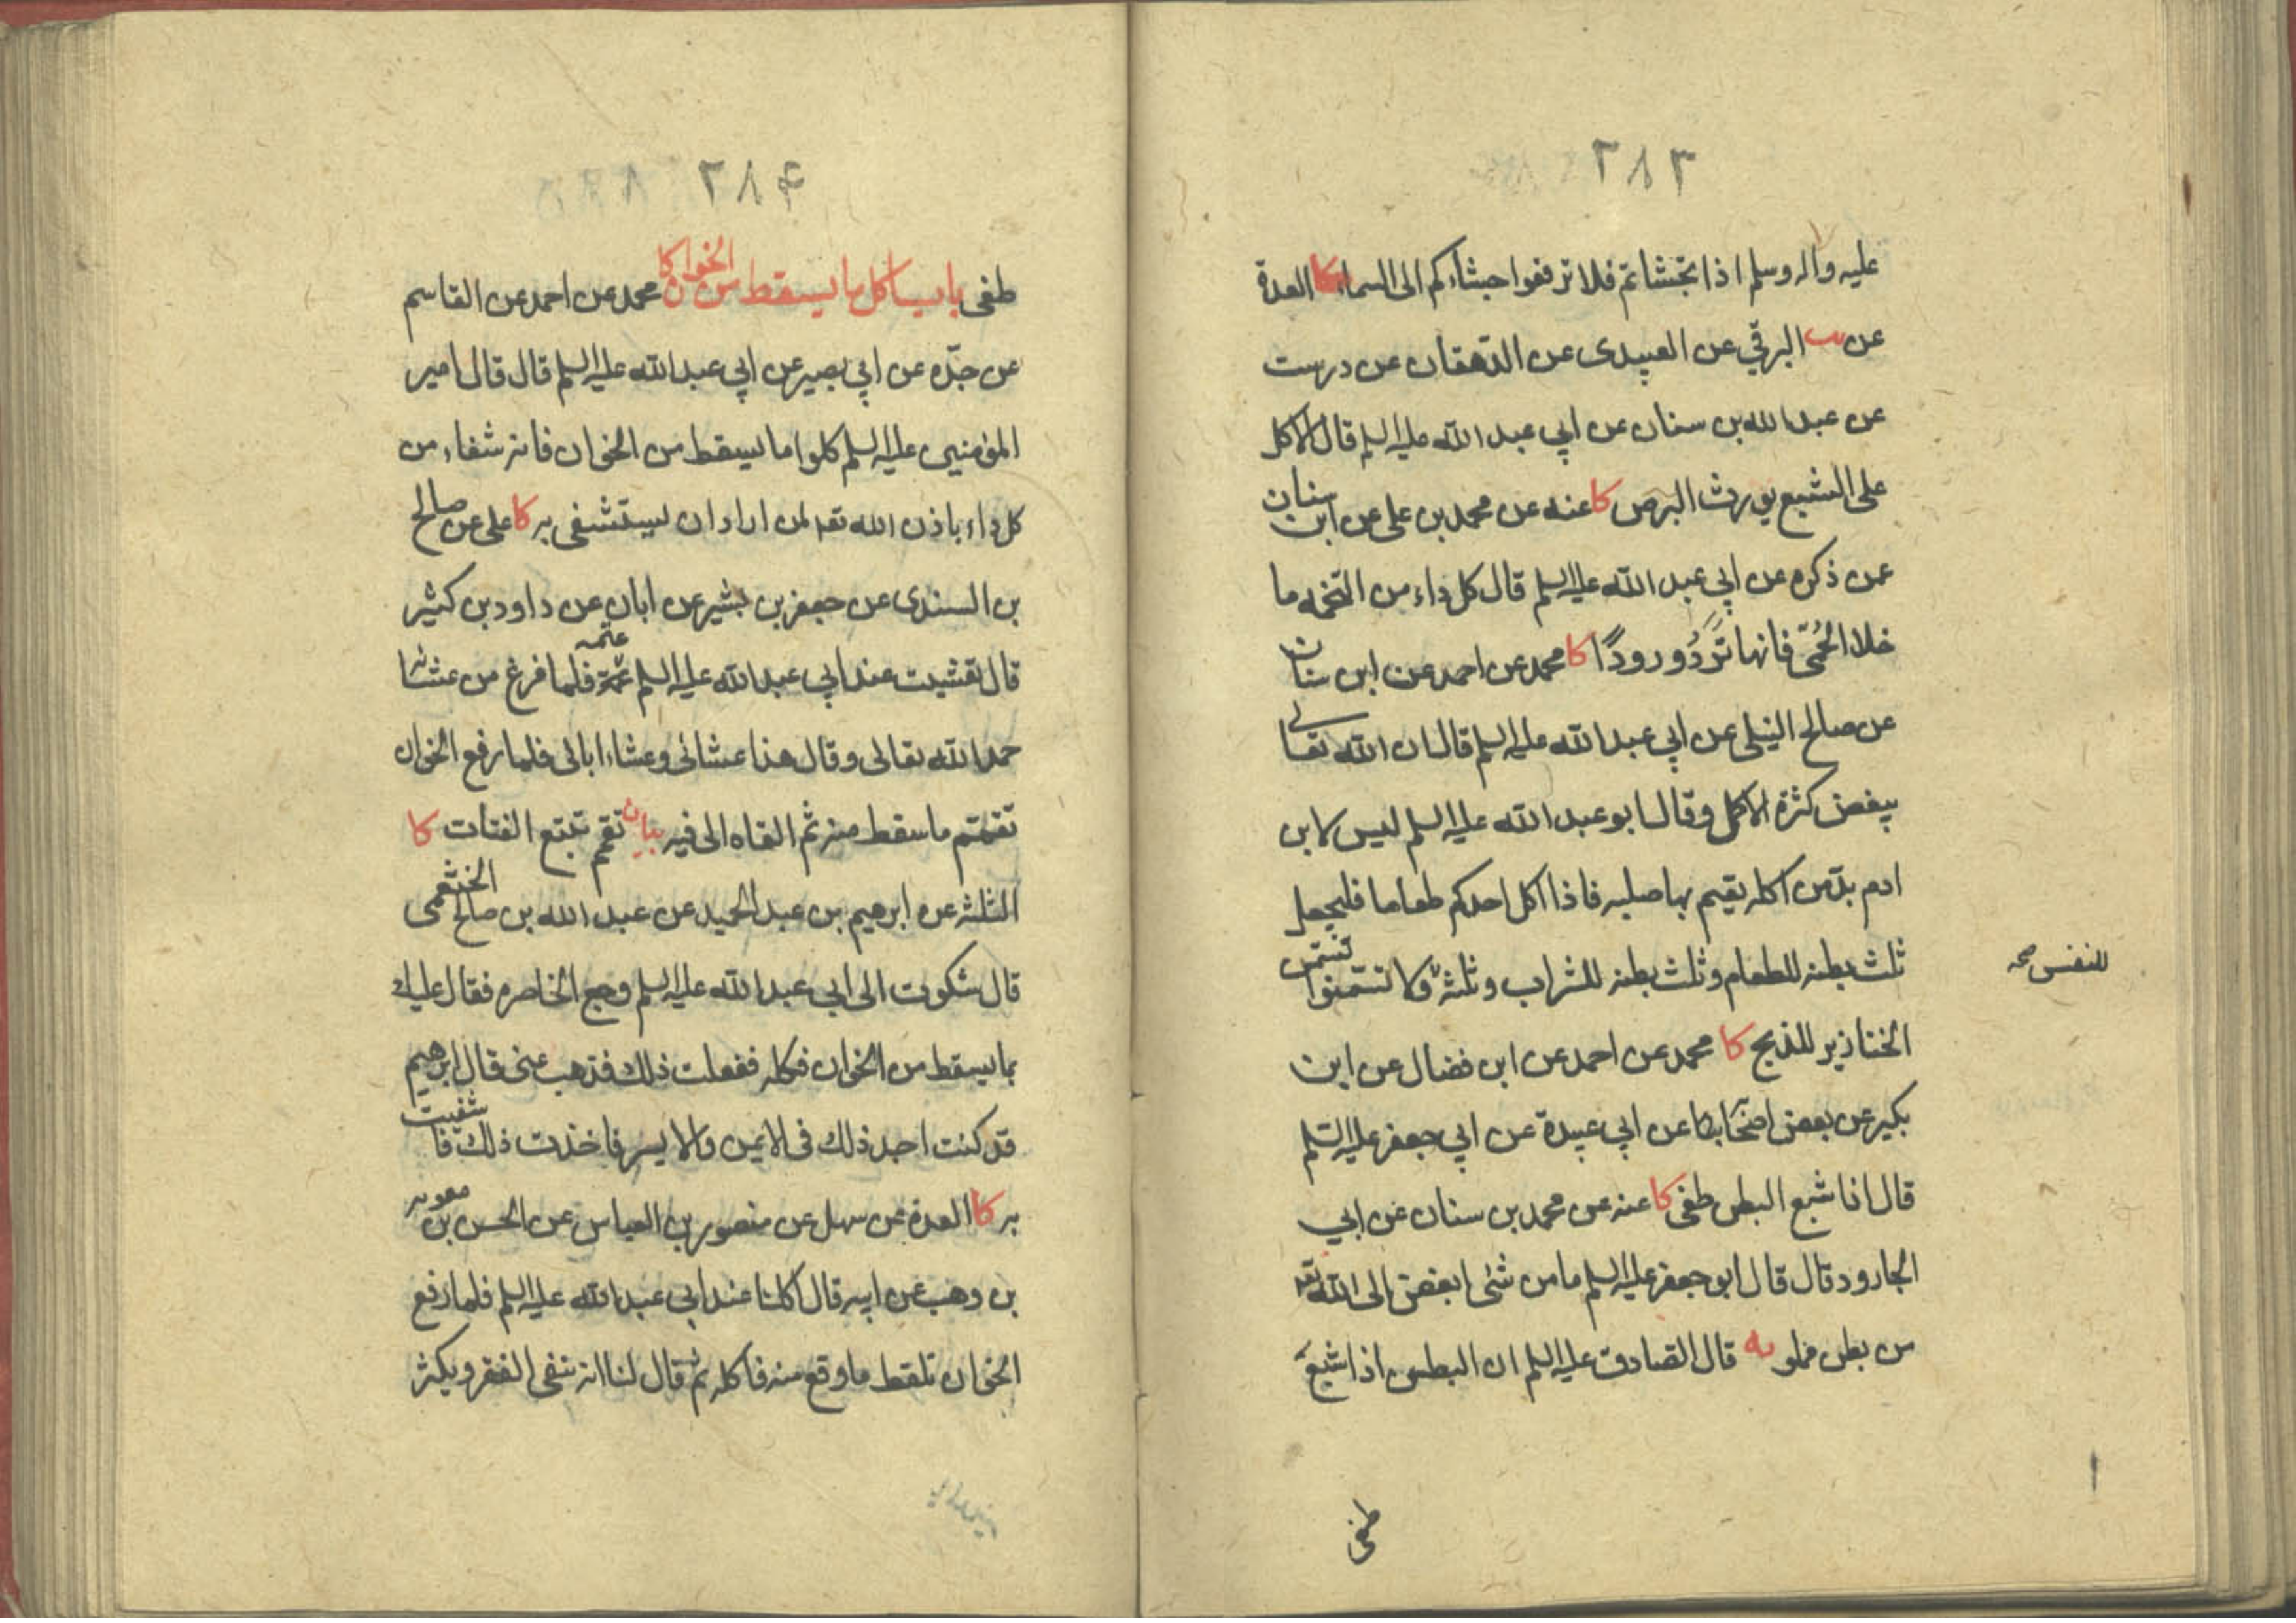 ٢٨٣
عليه واله وسلم اذا تجشاتم فلا ترفعوا جشاءكم الى السماء كا العدة
عن البرقي عن العبيدى عن الدهقان عن درست
عن عبد الله بن سنان عن ابي عبد الله عليه السلم قال الاكل
على الشبع يورث البرص كا عنه عن محمد بن على عن ابن سنان
عمن ذكره عن ابي عبد الله عليه السلم قال كل داء من التخمه ما
خلا الحُمّى فانها تَرِدُ ورودًا كا محمد عن احمد عن ابن سنان
عن صالح النيلى عن ابي عبد الله عليه السلم قال ان الله تعالى
يبغض كثرة الاكل وقال ابو عبد الله عليه السلم ليس لابن
ادم بدّ من اكله يقيم بها صلبه فاذا اكل احدكم طعاما فليجعل
ثلث بطنه للطعام وثلث بطنه للشراب وثلثه ولا تتسمنوا تسمن
للنفس صح
الخنازير للذبح كا محمد عن احمد عن ابن فضال عن ابن
بكير عن بعض اصحابنا عن ابي عبيدة عن ابي جعفر عليه السّلم
قال اذا شبع البطن طغى كا عنه عن محمد بن سنان عن ابي
الجارود قال قال ابو جعفر عليه السلم ما من شئ ابغض الى الله تعه
من بطن مملو يه قال الصادق عليه السلم ان البطن اذا شبع
طغى
٢٨۴
طغى باب اكل ما يسقط من الخوان كا محمد عن احمد عن القاسم
عن جدّه عن ابي بصير عن ابي عبد الله عليه السلم قال قال امير
المؤمنين عليه السلم كلوا ما يسقط من الخوان فانه شفاء من
كل داء باذن الله تعه لمن اراد ان يستشفى به كا على عن صالح
بن السندى عن جعفر بن بشير عن ابان عن داود بن كثير
قال تعشيت عند ابي عبد الله عليه السلم عتمة عتمه فلما فرغ من عشائه
حمد الله تعالى وقال هذا عشائى وعشاء ابائى فلما رفع الخوان
تقمّم ما سقط منه ثم القاه الى فيه بيان تقمم تتبع الفتات كا
الثلثه عن ابرهيم بن عبد الحميد عن عبد الله بن صالح الخثعمى
قال شكوت الى ابي عبد الله عليه السلم وجع الخاصره فقال عليك
بما يسقط من الخوان فكله ففعلت ذلك فذهب عنى قال ابرهيم
قد كنت اجد ذلك فى الايمن والايسر فاخذت ذلك فانتفعت
به كا العدة عن سهل عن منصور بن العباس عن الحسن بن معويه
بن وهب عن ابيه قال اكلنا عند ابي عبد الله عليه السلم فلما رفع
الخوان تلقط ما وقع منه فاكله ثم قال لنا انه ينفى الفقر ويكثر